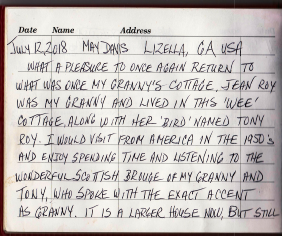 Date Name Address
JULY 12, 2018 MAY DAVIS LIZELLA, GA. USA
WHAT A PLEASURE TO ONCE AGAIN RETURN TO
WHAT WAS ONCE MY GRANNY'S COTTAGE. JEAN ROY
WAS MY GRANNY AND LIVED IN THIS 'WEE'
COTTAGE, ALONG WITH HER 'BIRD' NAMED TONY
ROY. I WOULD VISIT FROM AMERICA IN THE 1950'S
AND ENJOY SPENDING TIME AND LISTENING TO THE
WONDERFUL SCOTTISH BROUGE OF MY GRANNY AND
TONY, WHO SPOKE WITH THE EXACT ACCENT
AS GRANNY. IT IS A LARGER HOUSE NOW, BUT STILL